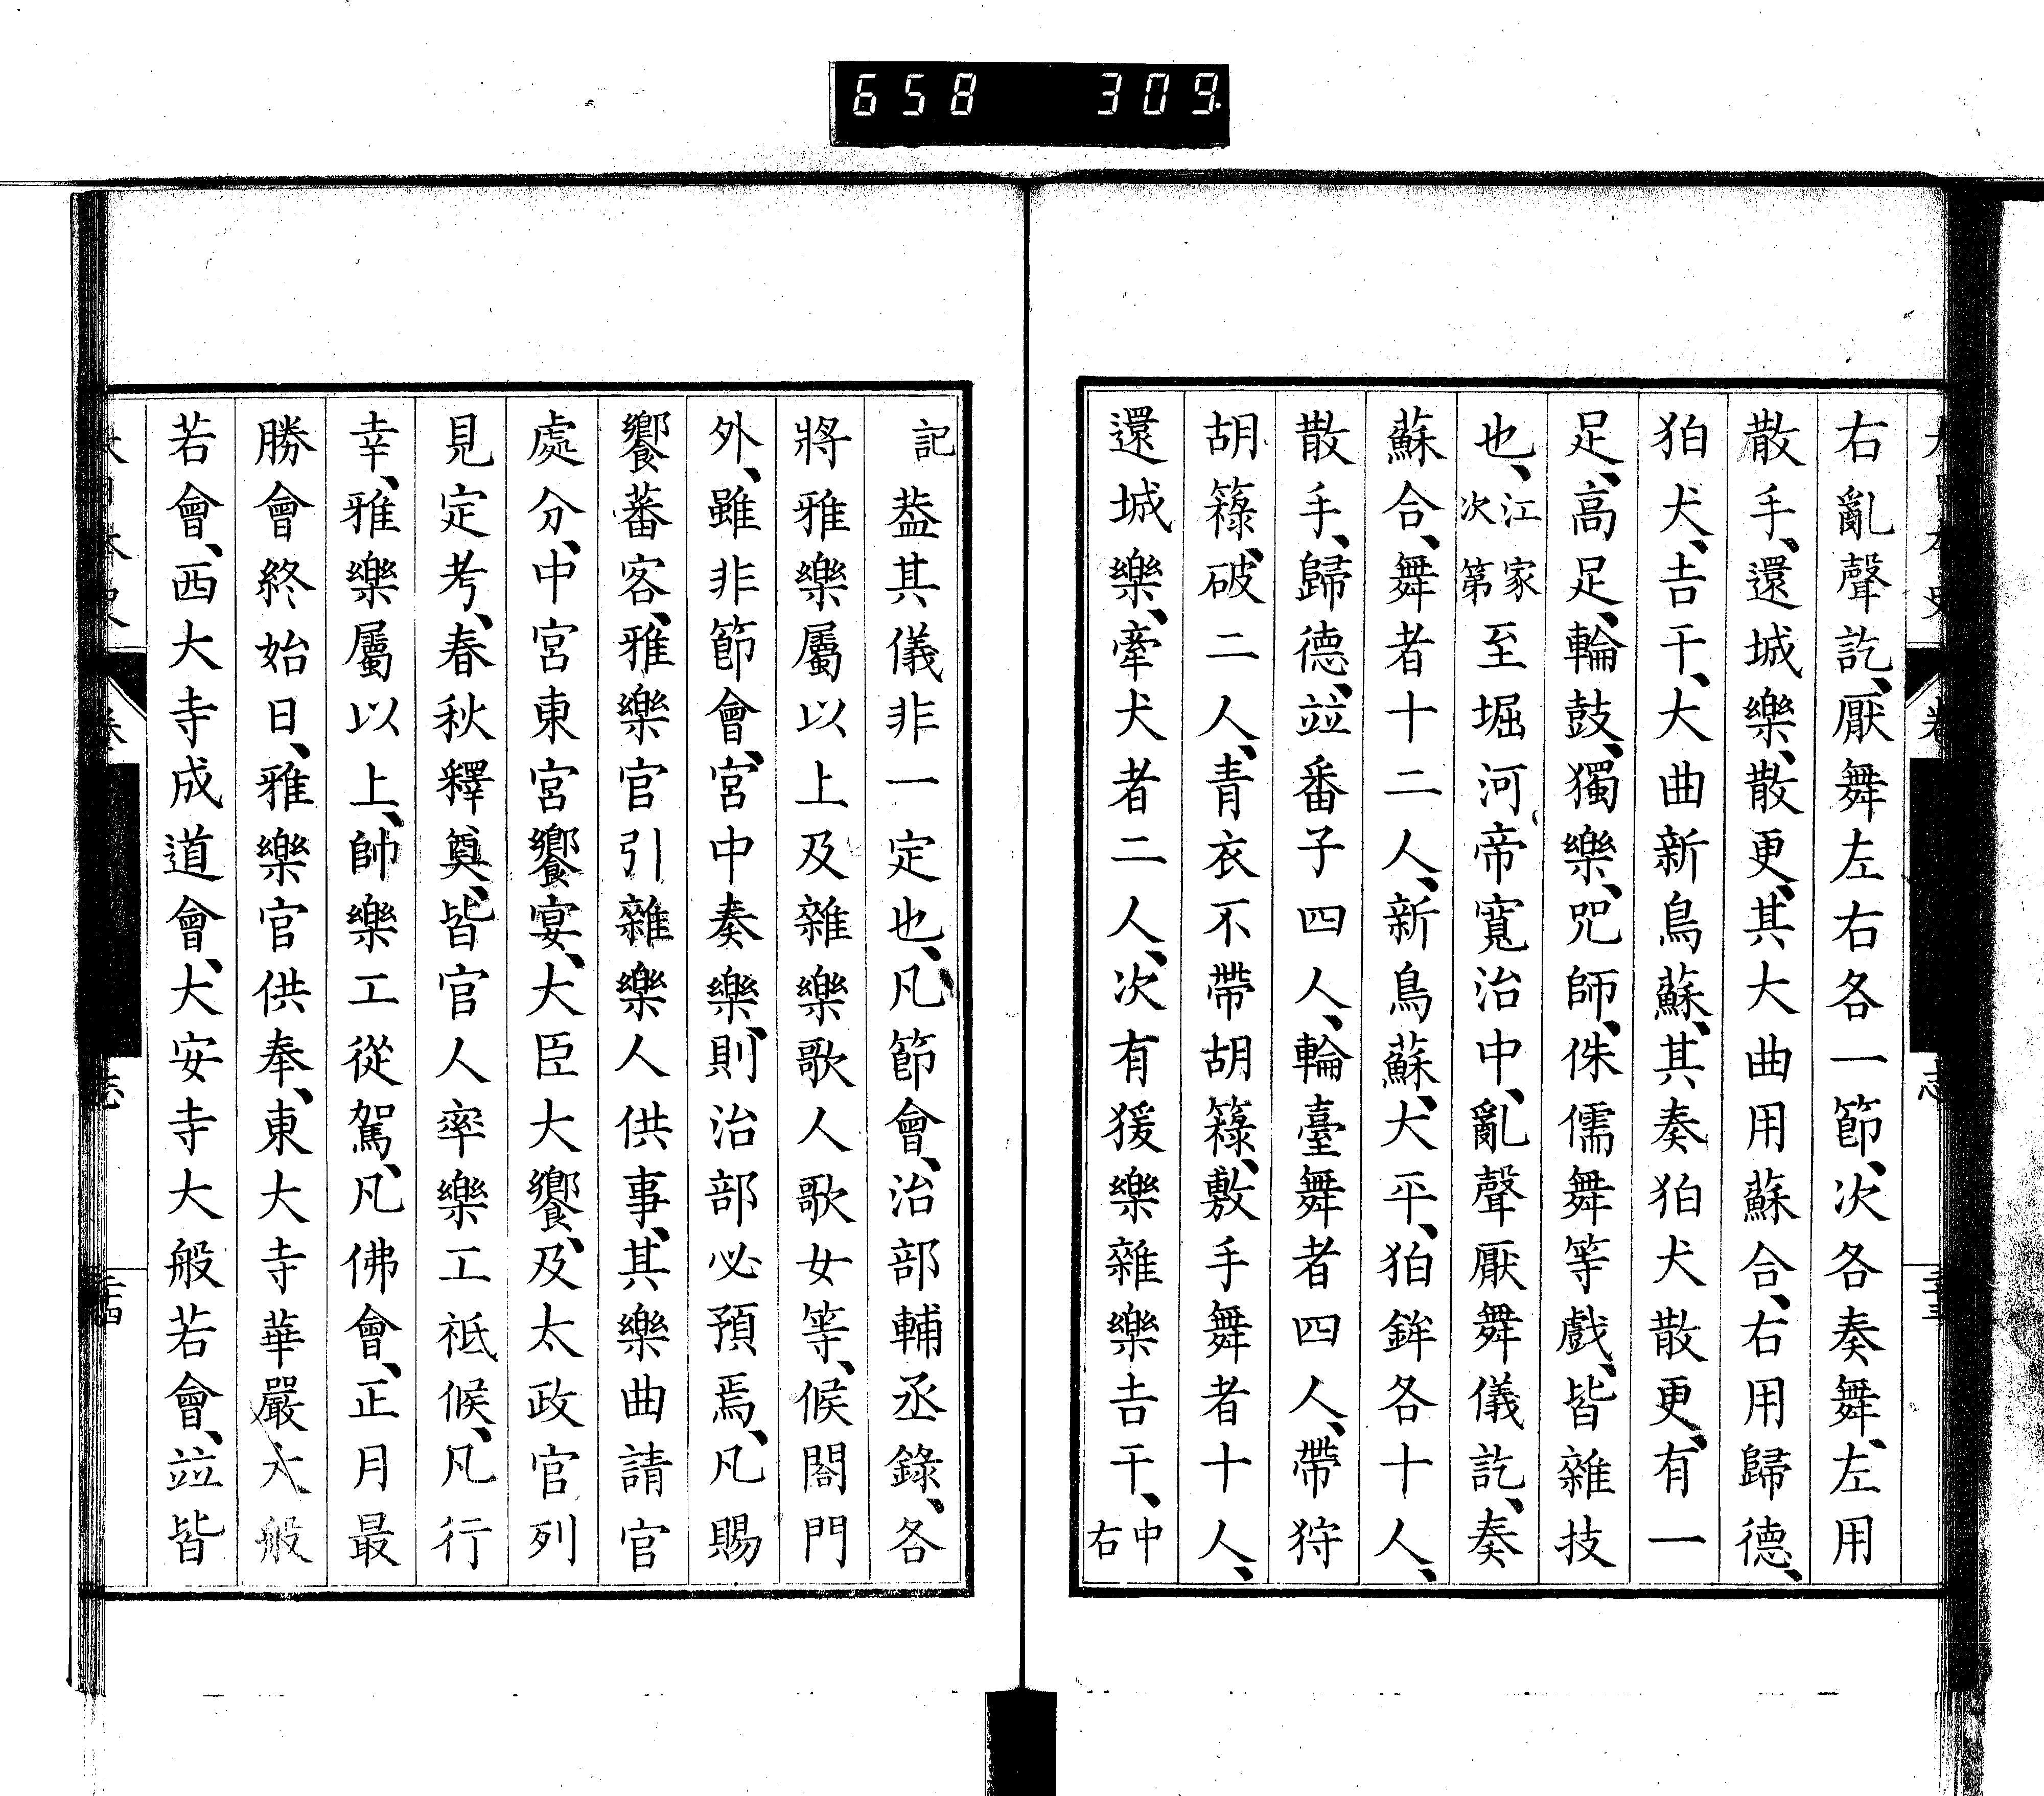 658 309
右亂聲訖、厭舞左右各一節、次各奏舞、左用
散手、還城樂、散更、其大曲用蘇合、右用歸德、
狛犬、吉干、大曲新鳥蘇、其奏狛犬散更、有一
足、高足、輪鼓、獨樂、咒師、侏儒舞等戲、皆雜技
也、江家次第至堀河帝寬治中、亂聲厭舞儀訖、奏
蘇合、舞者十二人、新鳥蘇、犬平、狛鉾各十人、
散手、歸德、竝番子四人、輪臺舞者四人、帶狩
胡籙、破二人、青衣不帶胡籙、敷手舞者十人、
還城樂、牽犬者二人、次有猨樂雜樂吉干、中右
記葢其儀非一定也、凡節會、治部輔丞錄、各
將雅樂屬以上及雜樂歌人歌女等、候閤門
外、雖非節會、宮中奏樂、則治部必預焉、凡賜
饗蕃客、雅樂官引雜樂人供事、其樂曲請官
處分、中宮東宮饗宴、大臣大饗、及太政官列
見定考、春秋釋奠、皆官人率樂工祗候、凡行
幸、雅樂屬以上、帥樂工從駕、凡佛會、正月最
勝會終始日、雅樂官供奉、東大寺華嚴大般
若會、西大寺成道會、大安寺大般若會、竝皆